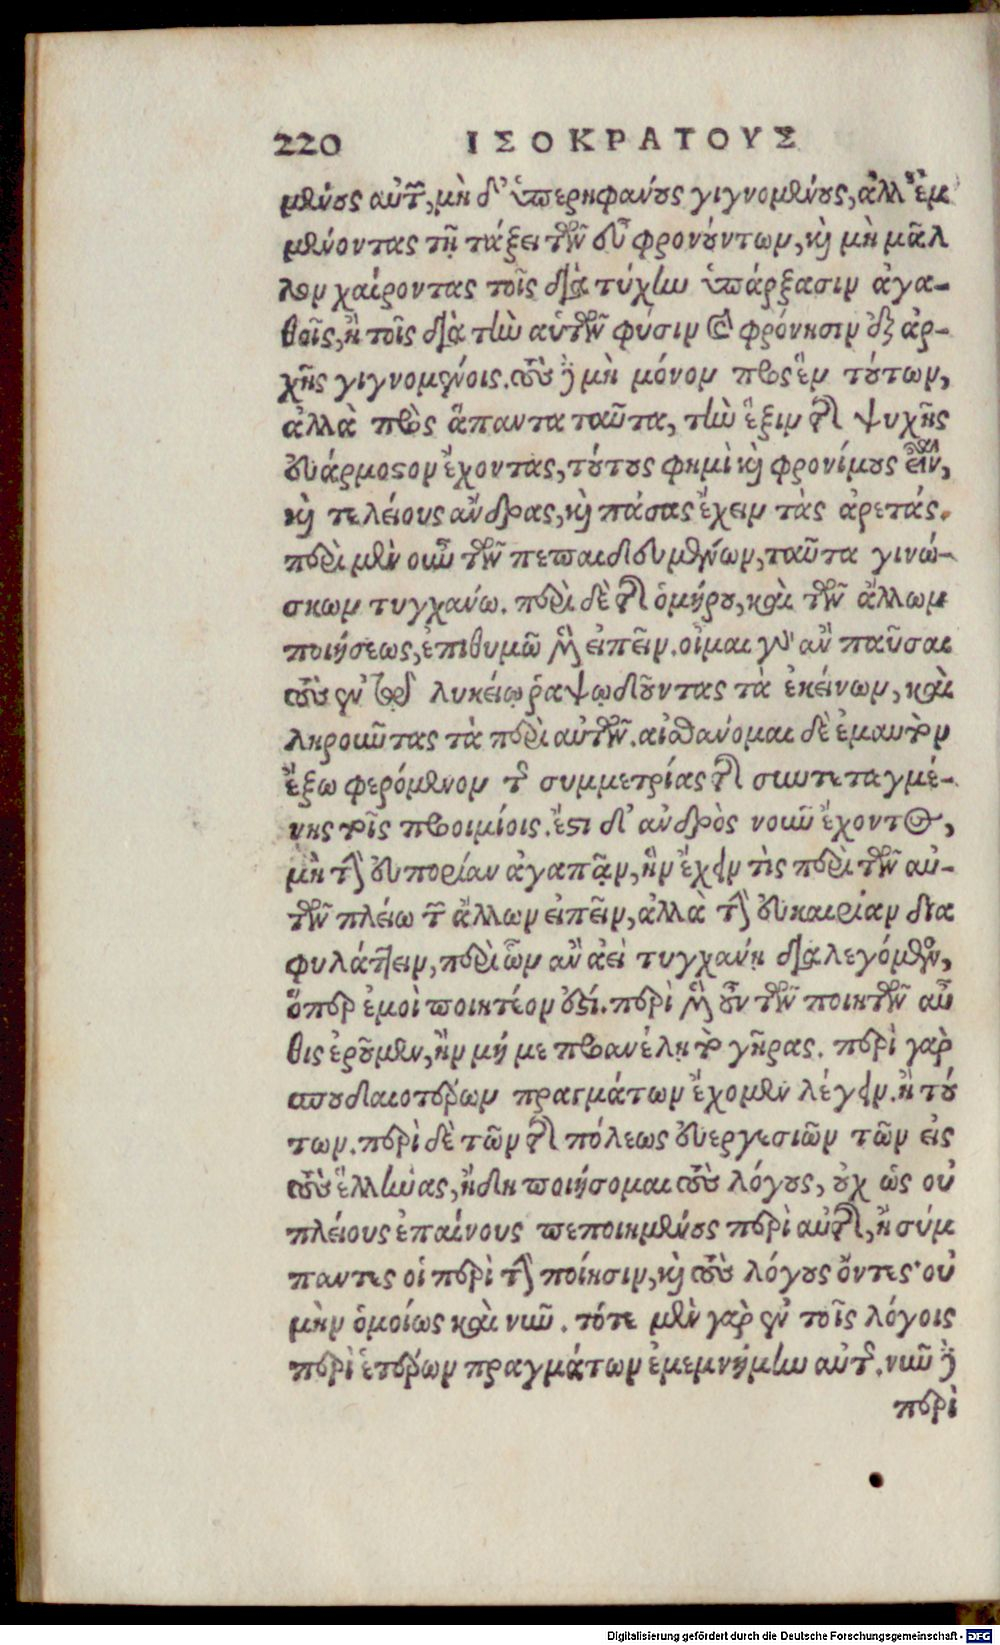 220 ΙΣΟΚΡΑΤΟΥΣ
μένους αὐτῶν, μὴ δ' ὑπερηφάνους γιγνομένους, ἀλλ' ἐμ
μένοντας τῇ τάξει τῶν εὖ φρονούντων, καὶ μὴ μᾶλ
λον χαίροντας τοῖς διὰ τύχην ὑπάρξασιν ἀγα-
θοῖς, ἢ τοῖς διὰ τὴν αὑτῶν φύσιν καὶ φρόνησιν ἐξ ἀρ-
χῆς γιγνομένοις. τοὺς δὲ μὴ μόνον πρὸς ἓν τούτων,
ἀλλὰ πρὸς ἅπαντα ταῦτα, τὴν ἕξιν τῆς ψυχῆς
εὐάρμοστον ἔχοντας, τούτους φημὶ καὶ φρονίμους εἶναι,
καὶ τελείους ἄνδρας, καὶ πάσας ἔχειν τὰς ἀρετάς.
περὶ μὲν οὖν τῶν πεπαιδευμένων, ταῦτα γινώ-
σκων τυγχάνω. περὶ δὲ τῆς ὁμήρου, καὶ τῶν ἄλλων
ποιήσεως, ἐπιθυμῶ μὲν εἰπεῖν. οἶμαι γὰρ ἂν παῦσαι
τοὺς ἐν τῷ λυκείῳ ῥαψῳδοῦντας τὰ ἐκείνων, καὶ
ληροῦντας τὰ περὶ αὐτῶν. αἰσθάνομαι δὲ ἐμαυτὸν
ἔξω φερόμενον τῆς συμμετρίας τῆς συντεταγμέ-
νης τοῖς προιμίοις. ἔστι δ' ἀνδρὸς νοῦν ἔχοντος,
μὴ τὴν εὐπορίαν ἀγαπᾷν, ἢν ἔχειν τὶς περὶ τῶν αὐ-
τῶν πλείω τῶν ἄλλων εἰπεῖν, ἀλλὰ τὴν εὐκαιρίαν δια
φυλάττειν, περὶ ὧν ἂν ἀεὶ τυγχάνῃ διαλεγόμενος,
ὅπερ ἐμοὶ ποιητέον ἐστί. περὶ μὲν οὖν τῶν ποιητῶν αὖ
θις ἐροῦμεν, ἢν μή με προανέλῃ τὸ γῆρας. περὶ γὰρ
σπουδαιοτέρων πραγμάτων ἔχομεν λέγειν. ἢ τού
των. περὶ δὲ τῶν τῆς πόλεως εὐεργεσιῶν τῶν εἰς
τοὺς ἕλληνας, ἤδη ποιήσομαι τοὺς λόγους, οὐχ ὡς οὐ
πλείους ἐπαίνους πεποιημένος περὶ αὐτῆς, ἢ σύμ
παντες οἱ περὶ τὴν ποίησιν, καὶ τοὺς λόγους ὄντες· οὐ
μὴν ὁμοίως καὶ νῦν. τότε μὲν γὰρ ἐν τοῖς λόγοις
περὶ ἑτέρων πραγμάτων ἐμεμνήμην αὐτῆς. νῦν δὲ
περὶ
Digitalisierung gefördert durch die Deutsche Forschungsgemeinschaft - DFG